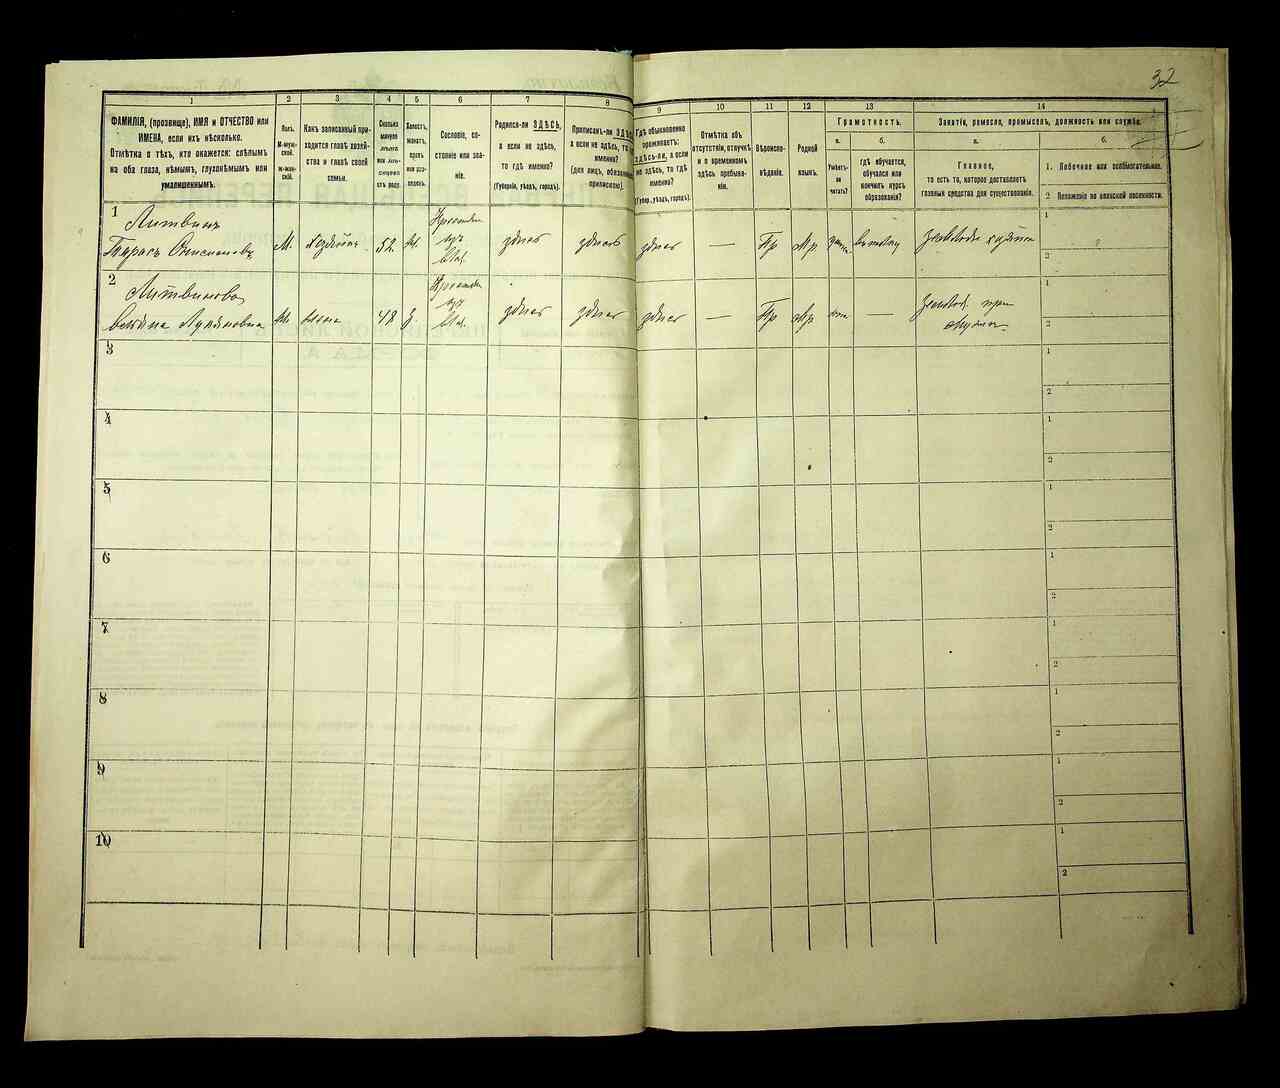 32
1
2
3
4
5
6
7
8
9
10
11
12
13
14
ФАМИЛІЯ, (прозвище), ИМЯ и ОТЧЕСТВО или
ИМЕНА, если ихъ нѣсколько.
Отмѣтка о тѣхъ, кто окажется: слѣпымъ
на оба глаза, нѣмымъ, глухонѣмымъ или
умалишеннымъ.
Полъ.
М-муж-
ской.
Ж-жен-
скій.
Какъ записанный при-
ходится главѣ хозяй-
ства и главѣ своей
семьи.
Сколько
минуло
лѣтъ
или мѣ-
сяцевъ
отъ роду.
Холостъ,
женатъ,
вдовъ
или раз-
веденъ.
Сословіе, со-
стояніе или зва-
ніе.
Родился-ли ЗДѢСЬ,
а если не здѣсь,
то гдѣ именно?
(Губернія, уѣздъ, городъ).
Приписанъ-ли ЗДѢСЬ,
а если не здѣсь, то гдѣ
именно?
(для лицъ, обязанныхъ
припискою).
Гдѣ обыкновенно
проживаетъ:
здѣсь-ли, а если
не здѣсь, то гдѣ
именно?
(Губер., уѣздъ, городъ).
Отмѣтка объ
отсутствіи, отлучкѣ
и о временномъ
здѣсь пребыва-
ніи.
Вѣроиспо-
вѣданіе.
Родной
языкъ.
Грамотность.
а.
б.
Умѣетъ-
ли
читать?
гдѣ обучается,
обучался или
кончилъ курсъ
образованія?
Занятіе, ремесло, промыселъ, должность или служба.
а.
б.
Главное,
то есть то, которое доставляетъ
главныя средства для существованія.
1. Побочное или вспомогательное.
2 Положеніе по воинской повинности.
1
Литвинъ
Тарасъ
М.
хозяинъ
52
здѣсь
здѣсь
здѣсь
—
Пр
Мр
1
2
2
Литвинова
жена
48
здѣсь
здѣсь
здѣсь
—
Пр
Мр
—
2
3
1
2
4
1
2
5
1
2
6
1
2
7
1
2
8
1
2
9
1
2
10
1
2